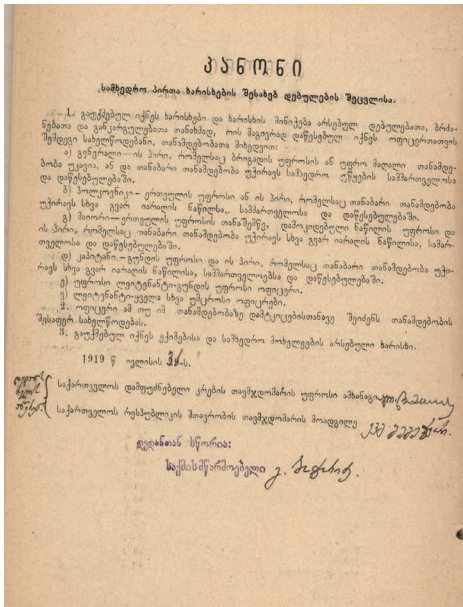 კანონი
სამხედრო პირთა ხარისხების შესახებ დებულების შეცვლისა.
1. გაუქმებულ იქნეს ხარისხები და ხარისხის მინიჭება არსებულ დებულებათა, ბრძა-
ნებათა და განკარგულებათა თანახმად, რის მაგივრად დაწესებულ იქნეს ოფიცერთათვის
შემდეგი სახელწოდებანი, თანამდებობათა მიხედვით:
ა) გენერალი—ის პირი, რომელსაც ბრიგადის უფროსის ან უფრო მაღალი თანამდე-
ბობა უკავია, ან და თანაბარი თანამდებობა უჭირავს სამხედრო უწყების სამმართველოსა
და დაწესებულებაში.
ბ) პოლკოვნიკი—ერთეულის უფროსი ან ის პირი, რომელსაც თანაბარი თანამდებობა
უჭირავს სხვა გვარ იარაღის ნაწილსა, სამმართველოსა და დაწესებულებაში.
გ) მაიორი—ერთეულის უფროსის თანაშემწე, დამოკიდებული ნაწილის უფროსი და
ის პირი, რომელსაც თანაბარი თანამდებობა უჭირავს სხვა გვარ იარაღის ნაწილისა, სამარ-
თველოსა და დაწესებულებაში.
დ) კაპიტანი—გუნდის უფროსი და ის პირი, რომელსაც თანაბარი თანამდებობა უჭი-
რავს სხვა გვარ იარაღის ნაწილისა, სამმართველოებსა და დაწესებულებაში.
ე) უფროსი ლეიტენანტი—გუნდის უფროსი ოფიცერი.
ვ) ლეიტენანტი—ყველა სხვა უმცროსი ოფიცრები.
2. ოფიცერი ამ თუ იმ თანამდებობაზე დამტკიცებისთანავე შეიძენს თანამდებობის
შესაფერ სახელწოდებას.
3. გაუქმებულ იქნეს ექიმებისა და სამხედრო მოხელეების არსებული ხარისხი.
1919 წ ივლისის 31-ს.
საქართველოს დამფუძნებელი კრების თავმჯდომარის უფროსი ამხანაგი
საქართველოს რესპუბლიკის მთავრობის თავმჯდომარის მოადგილე
დედანთან სწორია:
საქმისმწარმოებელი